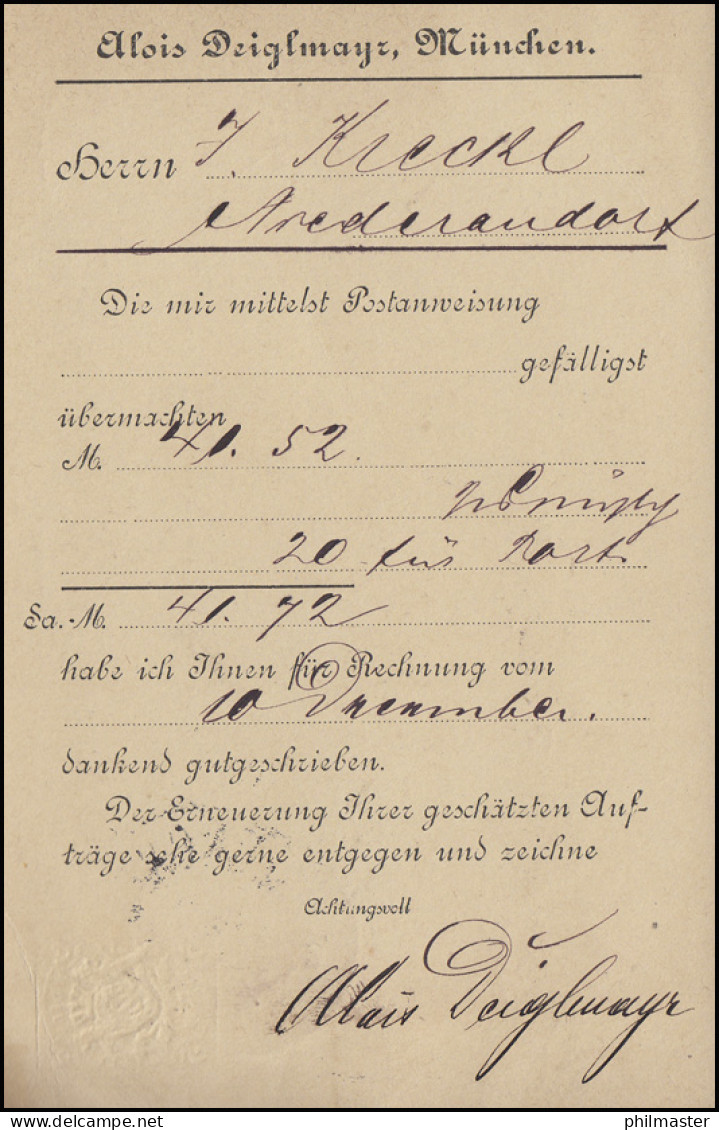 Alois Deiglmayr, München.
Herrn J. Kreckl
Niederaudorf
Die mir mittelst Postanweisung
gefälligst
übermachten
M. 41. 52.
20 für Port.
Sa. M. 41. 72
habe ich Ihnen für Rechnung vom
10 Dezember.
dankend gutgeschrieben.
Der Erneuerung Ihrer geschätzten Auf-
träge sehe gerne entgegen und zeichne
Achtungsvoll
Alois Deiglmayr
delcampe.net
philmaster